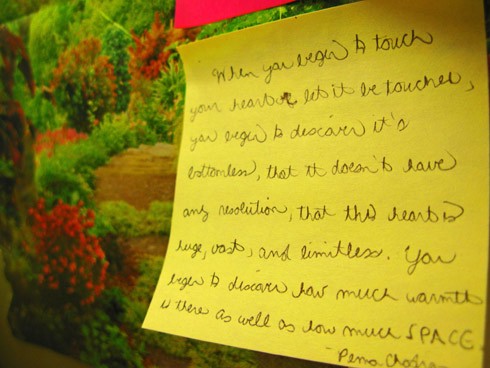 When you begin to touch
your heart or let it be touched,
you begin to discover it's
bottomless, that it doesn't have
any resolution, that this heart is
huge, vast, and limitless. You
begin to discover how much warmth
is there as well as how much SPACE.
- Pema Chodron